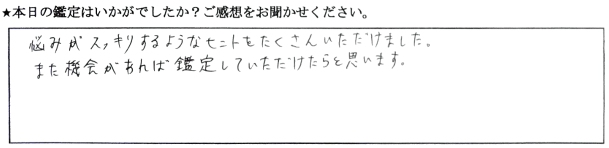 ★本日の鑑定はいかがでしたか？ご感想をお聞かせください。
悩みがスッキリするようなヒントをたくさんいただけました。
また機会があれば鑑定していただけたらと思います。